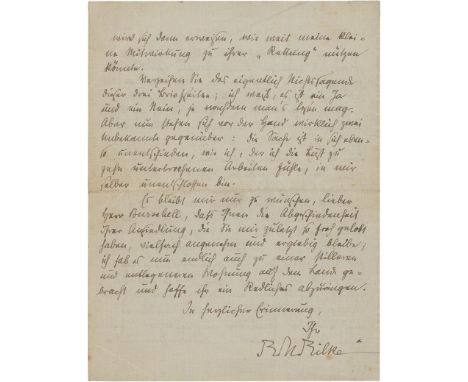 wird sich dann erweisen, wie weit meine klei-
ne Mitwirkung zu ihrer „Rettung" nützen
könnte.
Verzeihen Sie das eigentlich Nichtssagende
dieser drei Briefseiten; ich weiß, es ist ein Ja
und ein Nein, je nachdem man's lesen mag.
Aber nun stehen sich vor der Hand wirklich zwei
Unbekannte gegenüber: die Sache ist in sich eben-
so unentschieden, wie ich, der ich die Last zu
zehn unterbrochenen Arbeiten fühle, in mir
selber unentschlossen bin.
Es bleibt mir nur zu wünschen, lieber
Herr Burschell, daß Ihnen die Abgeschiedenheit
Ihrer Ansiedlung, die Sie mir zuletzt so froh gelobt
haben, vielfach angenehm und ergiebig bleibe;
ich hab es nun endlich auch zu einer stilleren
und entlegeneren Wohnung auf dem Land ge-
bracht und hoffe ihr ein Redliches abzuringen.
In herzlicher Erinnerung,
Ihr
RMRilke